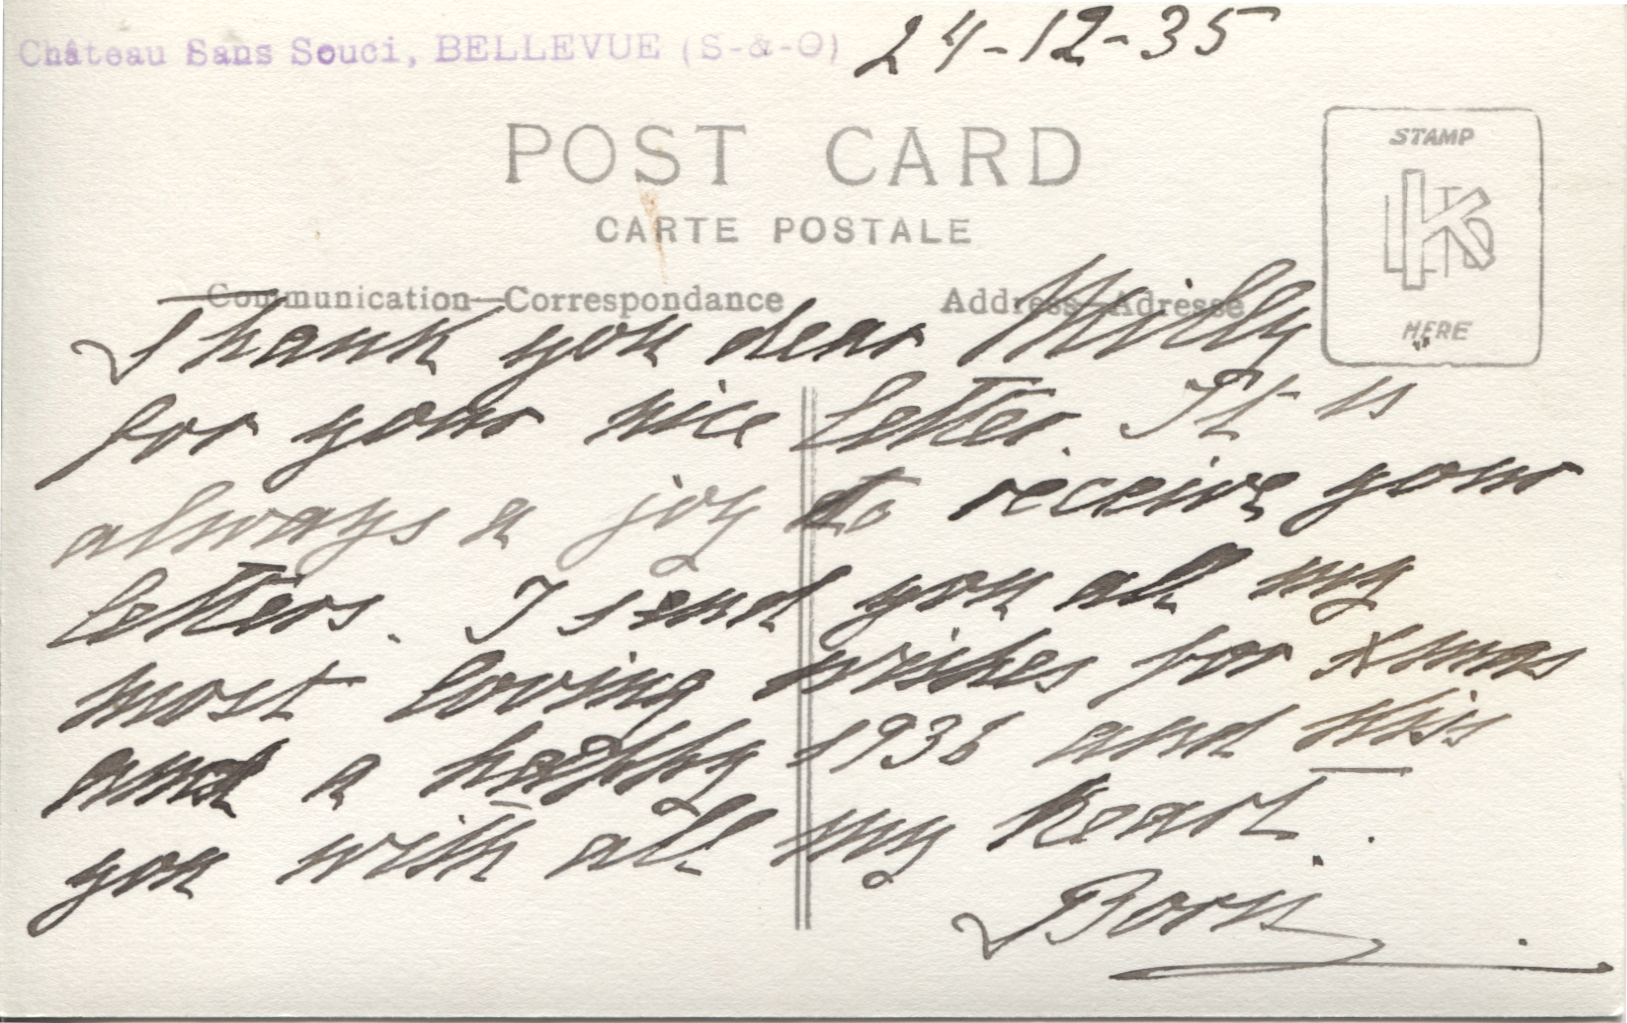 Château Sans Souci, BELLEVUE (S-&-O) 24-12-35
POST CARD
CARTE POSTALE
STAMP
HERE
Communication—Correspondance
Address—Adresse
Thank you dear Milly
for your nice letter. It is
always a joy to receive your
letters. I send you all my
most loving wishes for Xmas
and a happy 1936 and kiss
you with all my heart.
Boris